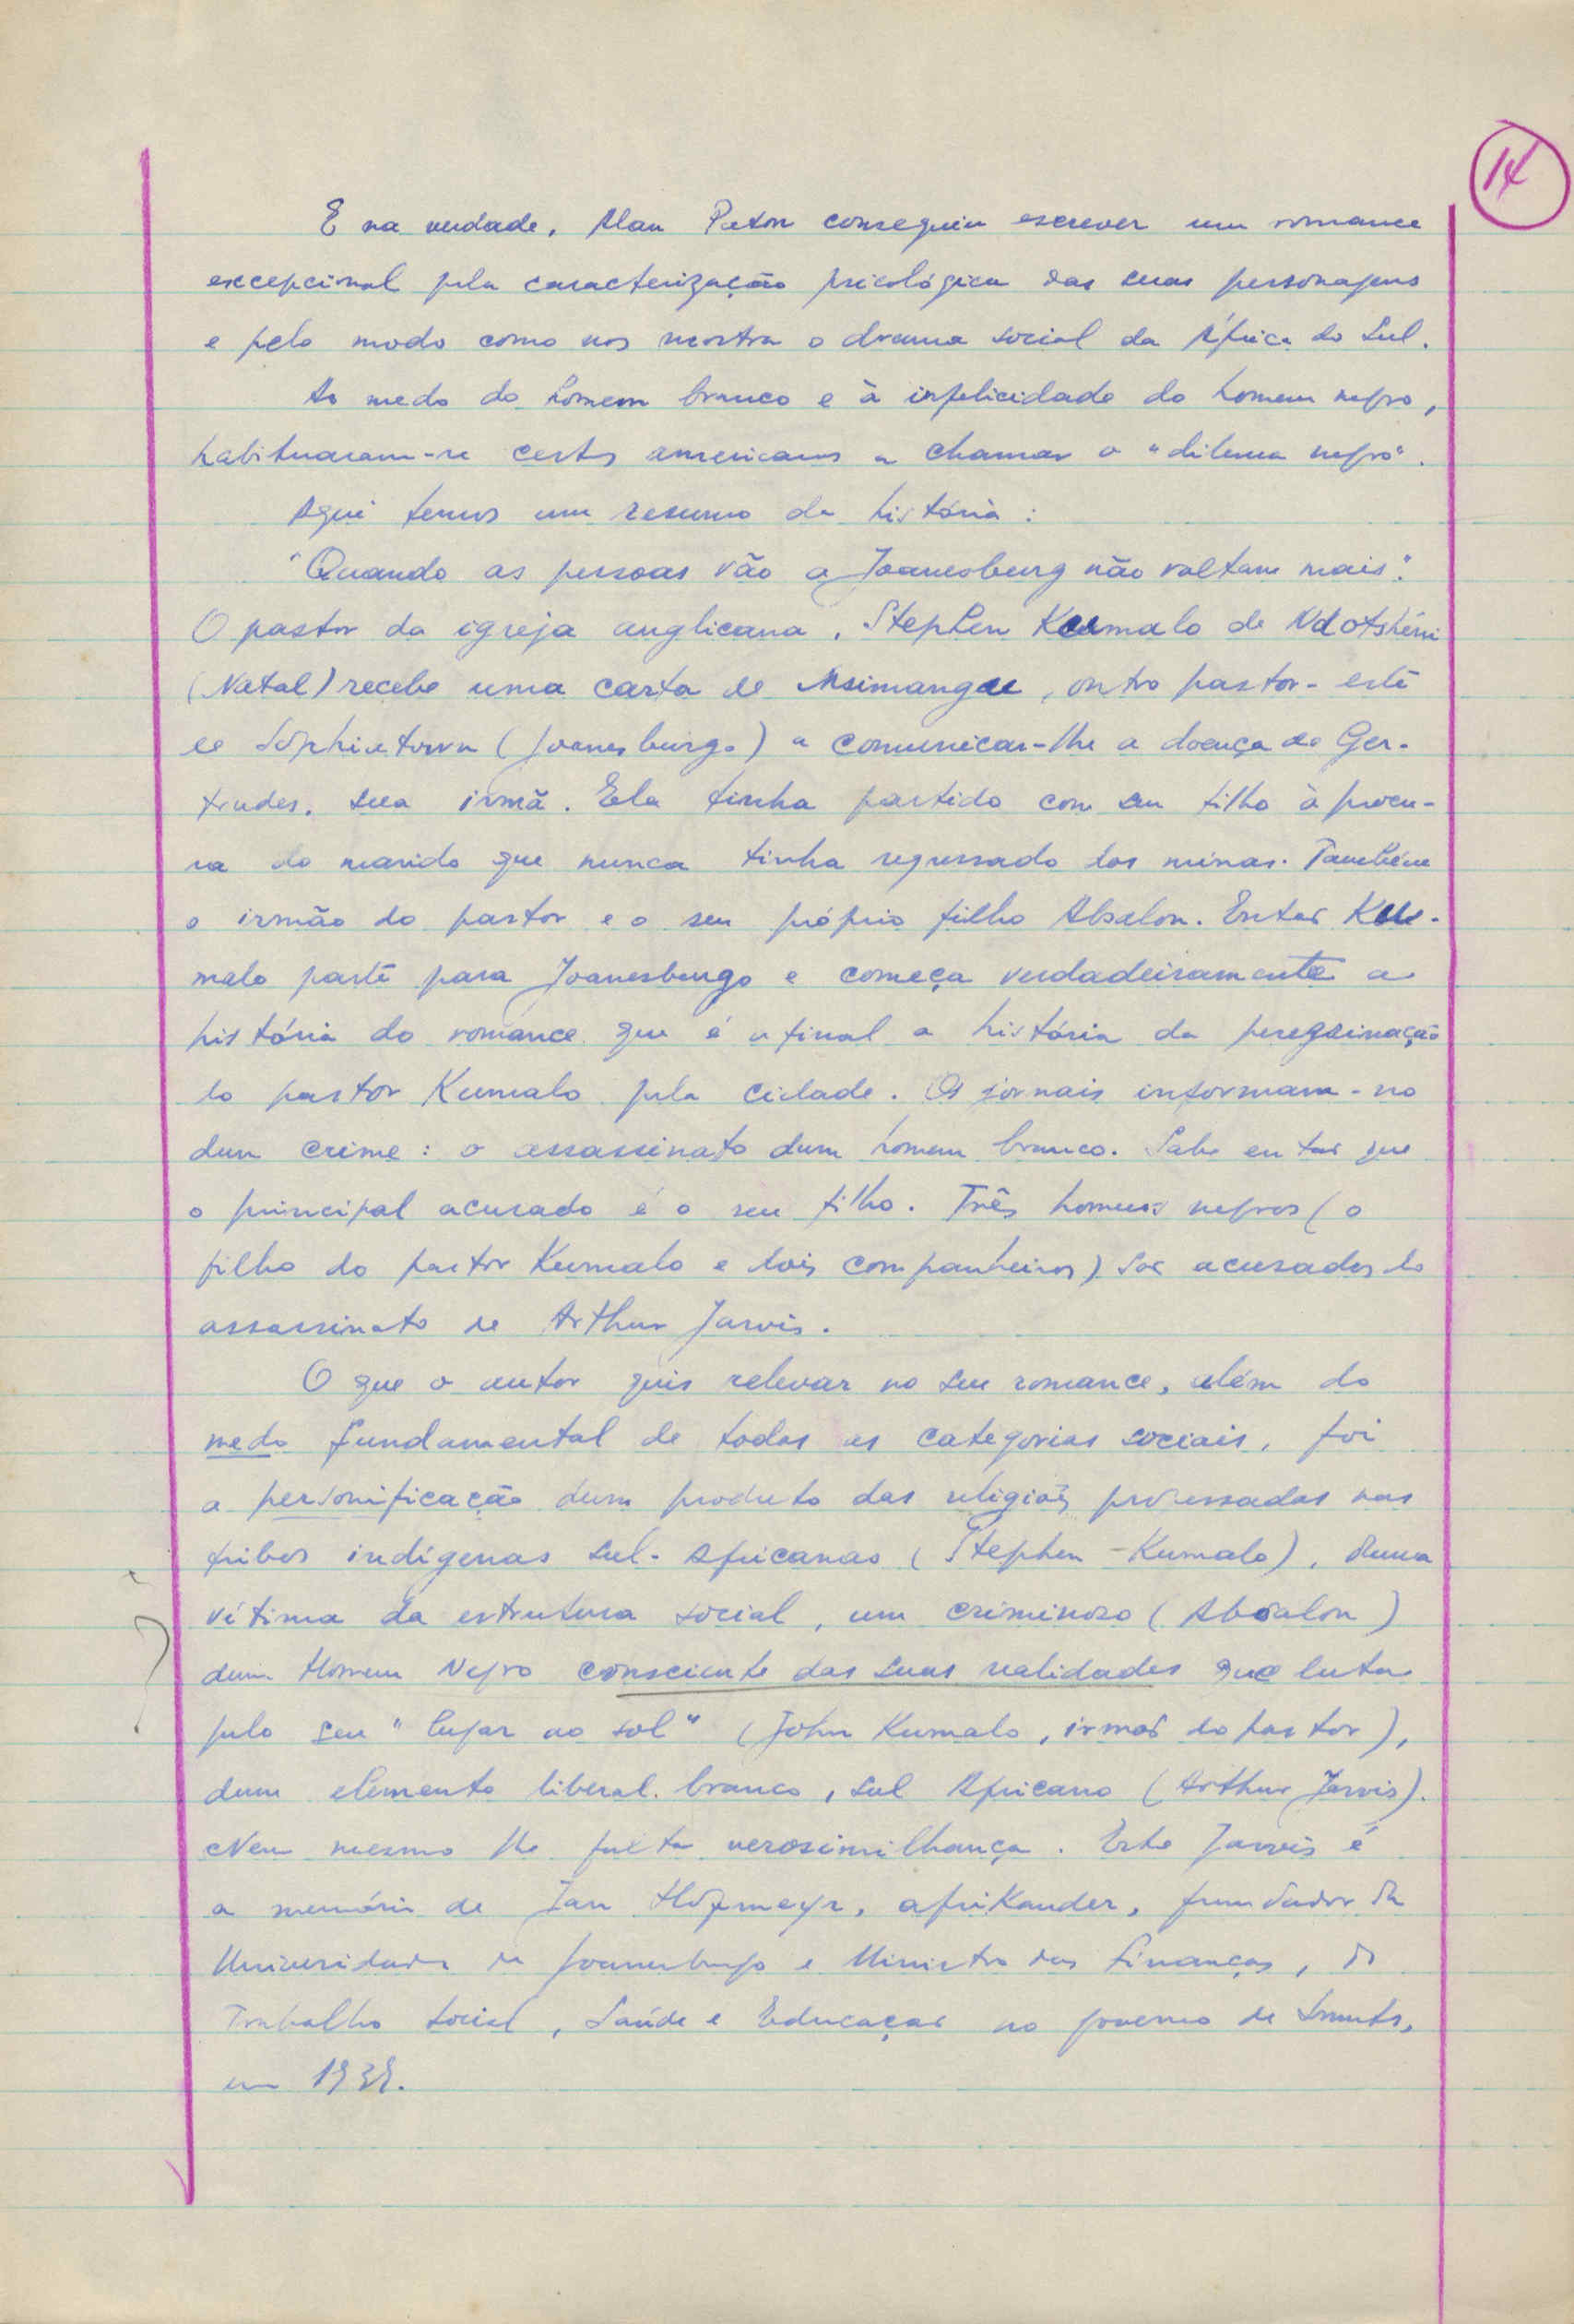 14
E na verdade, Alan Paton conseguiu escrever um romance
excepcional pela caracterização psicológica das suas personagens
e pelo modo como nos mostra o drama social da África do Sul.
Ao medo do homem branco e à infelicidade do homem negro,
habituaram-se certos americanos a chamar o "dilema negro".
Aqui temos um resumo da história:
"Quando as pessoas vão a Joanesburg não voltam mais".
O pastor da igreja anglicana, Stephen Kumalo de Ndotshéni
(Natal) recebe uma carta de Msimangu, outro pastor - este
de Sophiatown (Joanesburgo) a comunicar-lhe a doença de Ger-
trudes, sua irmã. Ela tinha partido com seu filho à procu-
ra do marido que nunca tinha regressado das minas. Também
o irmão do pastor e o seu próprio filho Absalon. Então Ku-
malo parte para Joanesburgo e começa verdadeiramente a
história do romance que é afinal a história da peregrinação
do pastor Kumalo pela cidade. Os jornais informam-no
dum crime: o assassinato dum homem branco. Sabe então que
o principal acusado é o seu filho. Três homens negros (o
filho do pastor Kumalo e dois companheiros) são acusados do
assassinato de Arthur Jarvis.
O que o autor quis relevar no seu romance, além do
medo fundamental de todas as categorias sociais, foi
a personificação dum produto das religiões professadas nas
tribos indígenas sul-Africanas (Stephen-Kumalo), duma
vítima da estrutura social, um criminoso (Absalon)
dum Homem Negro consciente das suas realidades que luta
pelo seu "lugar ao sol" (John Kumalo, irmão do pastor),
dum elemento liberal branco, sul Africano (Arthur Jarvis).
Nem mesmo lhe falta verosimilhança. Este Jarvis é
a memória de Jan Hofmeyr, afrikander, fundador da
Universidade de Joanesburgo e Ministro das Finanças, do
Trabalho Social, Saúde e Educação no governo de Smuts,
em 1939.